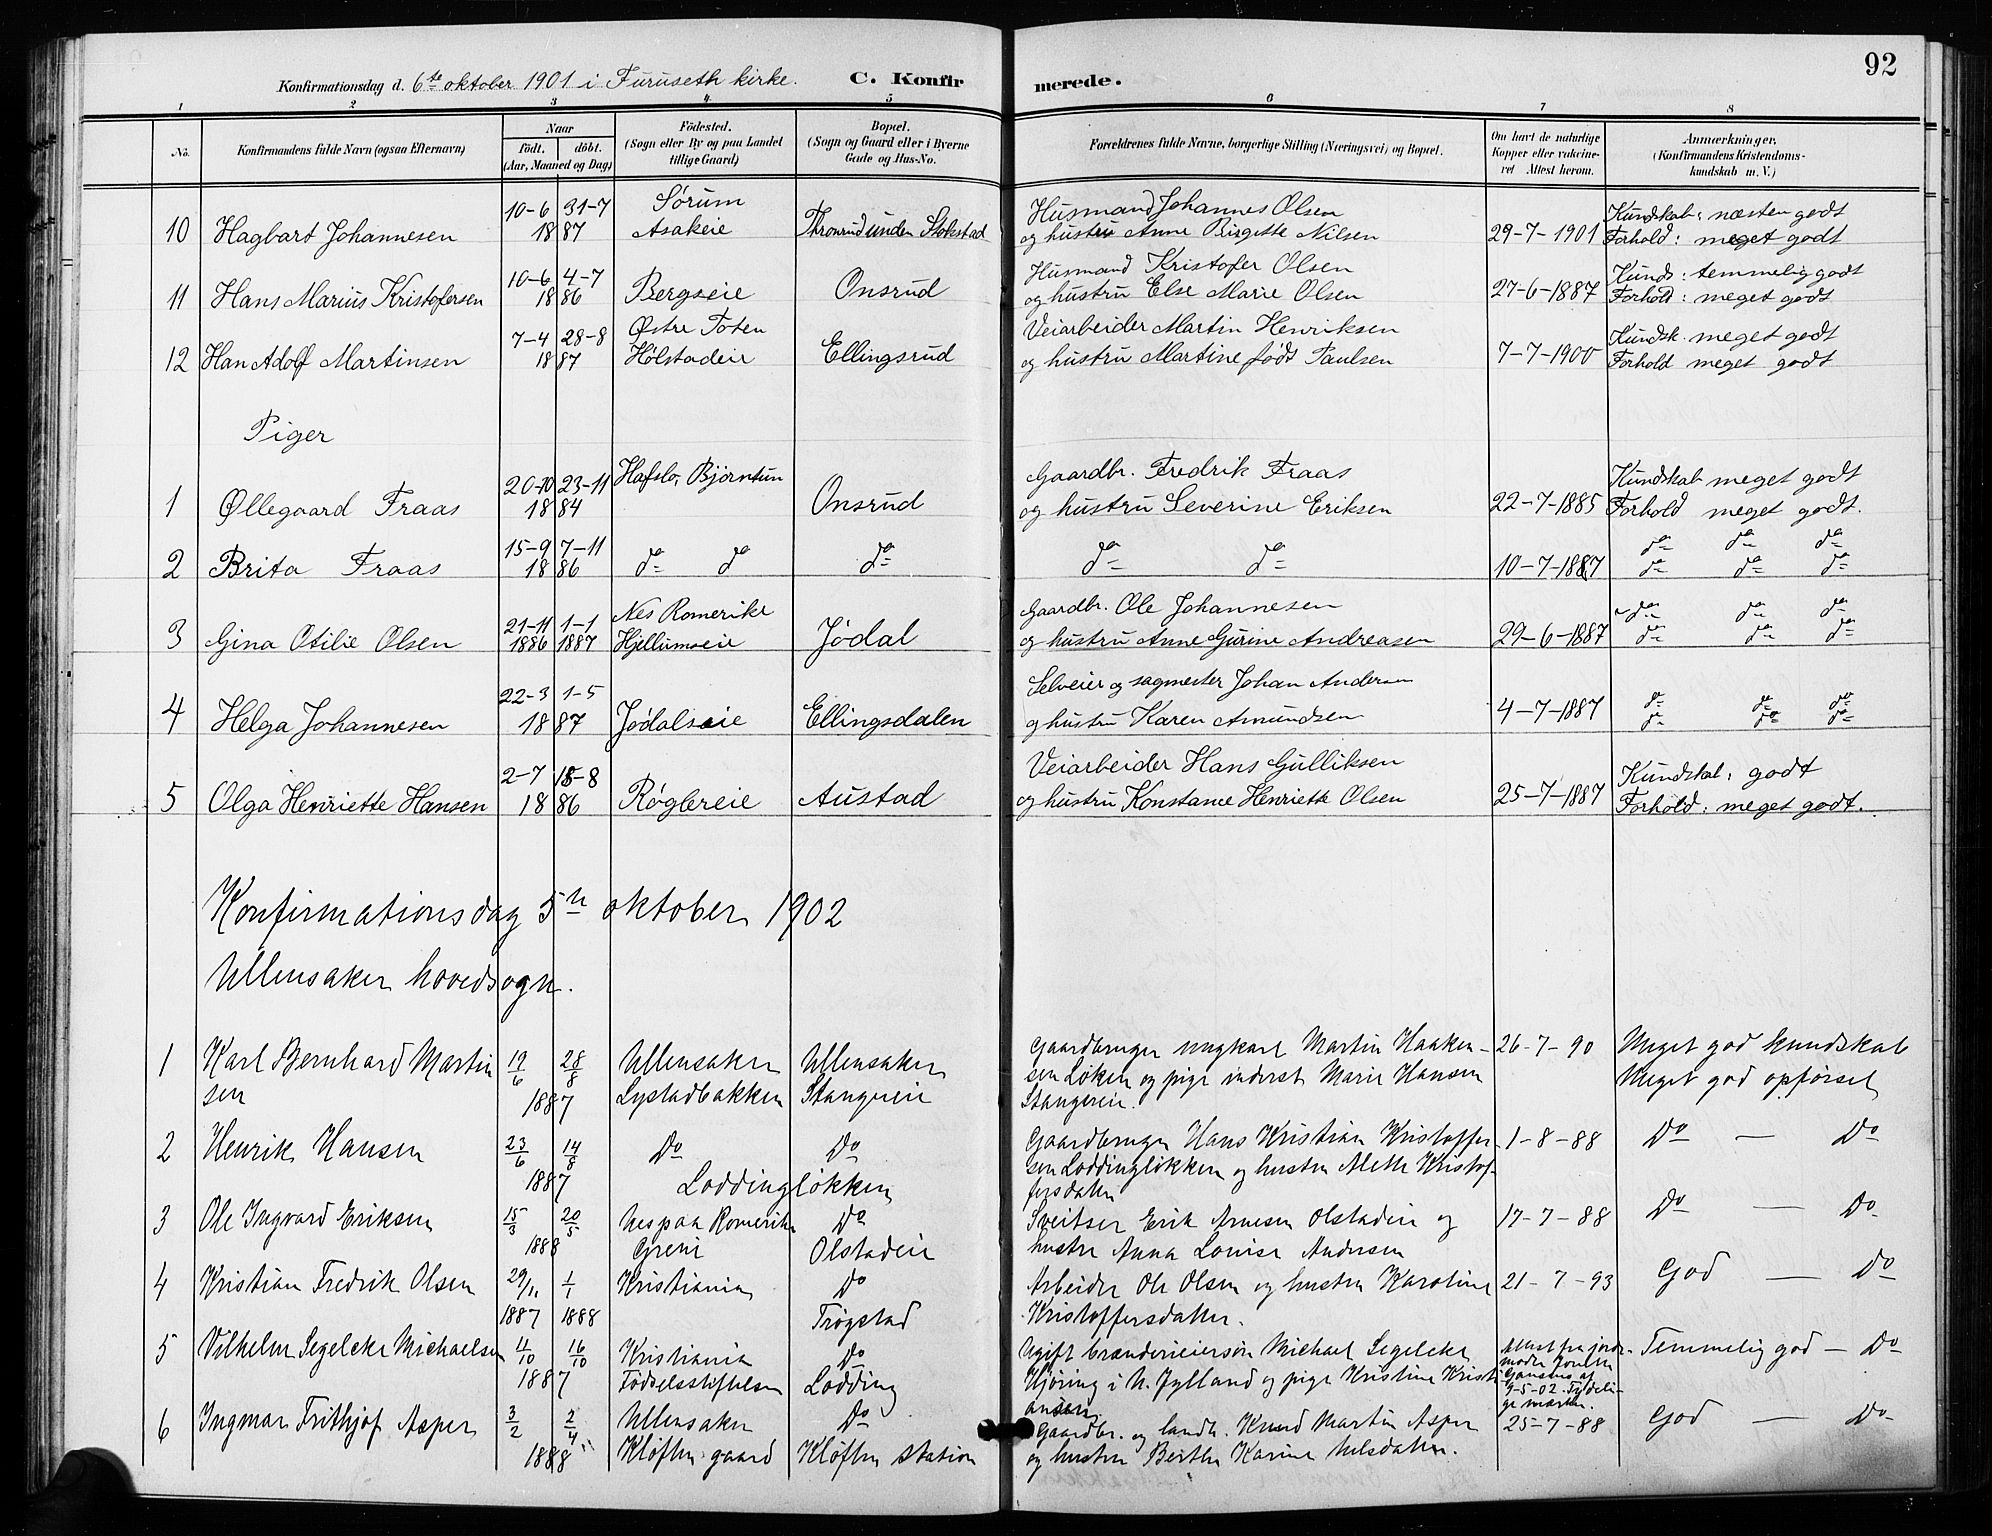 92
Konfirmationsdag d. 6te oktober 1901 i Furuseth kirke. C. Konfirmerede.
1 2 3 4 5 6 7 8
No. Konfirmandens fulde Navn (ogsaa Efternavn) Naar födt. döbt. (Aar, Maaned og Dag) Födested. (Sogn eller By og paa Landet tillige Gaard) Bopæl. (Sogn og Gaard eller i Byerne Gade og Hus-No. Forældrenes fulde Navne, borgerlige Stilling (Næringsvei) og Bopæl. Om havt de naturlige Kopper eller vakcineret Attest herom. Anmerkninger, (Konfirmandens Kristendomskundskab m. V.)
10-6 31-7 Sørum Husmand Johannes Olsen Kundskab: næsten godt
10 Hagbart Johannesen 1887 Asakeie Thronrud under Stokstad og hustru Anne Birgitte Nilsen 29-7-1901 Forhold: meget godt
10-6 4-7 Husmand Kristofer Olsen Kunds: temmelig godt
11 Hans Marius Kristofersen 1886 Bergseie Onsrud og hustru Else Marie Olsen 27-6-1887 Forhold: meget godt
7-4 28-8 Østre Toten Veiarbeider Martin Henriksen Kundsk. meget godt
12 Han Adolf Martinsen 1887 Hølstadeie Ellingsrud og hustru Martine føds Paulsen 7-7-1900 Forhold meget godt
Piger
20-10 23-11 Hafslo, Bjørntun Gaardbr. Fredrik Fraas Kundskab meget godt
1 Øllegaard Fraas 1884 Onsrud og hustru Severine Eriksen 22-7-1885 Forhold meget godt.
15-9 7-11 do do do
2 Brita Fraas 1886 do do do do do 10-7-1887 do do do
21-11 1-1 Nes Romerike Gaardbr. Ole Johannesen do do do
3 Gina Otilie Olsen 1886 1887 Hjellumseie Jødal og hustru Anne Gurine Andreasen 29-6-1887 do do do
22-3 1-5 Selveier og sagmester Johan Andersen do do do
4 Helga Johannesen 1887 Jødalseie Ellingsdalen og hustru Karen Amundsen 4-7-1887 do do do
2-7 15-8 Veiarbeider Hans Gulliksen Kundskab: godt
5 Olga Henriette Hansen 1886 Røglereie Austad og hustru Konstanse Henriette Olsen 25-7-1887 Forhold: meget godt.
Konfirmationsdag 5te oktober 1902
Ullensaker hovedsogn.
1 Karl Bernhard Martin 19/6 28/8 Ullensaker Ullensaker Gaardbruger ungkarl Martin Haaken- 26-7-90 Meget god kundskab
sen 1887 Lystadbakken Stangereie sen Løken og pige inderst Marie Hansen Meget god opførsel
Stangereie.
2 Henrik Hansen 23/6 14/8 Do Do Gaardbruger Hans Kristian Kristoffer 1-8-88 Do — Do
1887 Loddingløkken sen Loddingløkken og hustru Alette Kristof-
fersdatter
3 Ole Ingvard Eriksen 15/3 20/5 Nes paa Romerike Do Sveitser Erik Arnesen Olstadeie og 17-7-88 Do — Do
1888 Greni Olstadeie hustru Anna Lovise Andersen
4 Kristian Fredrik Olsen 29/11 1/1 Kristiania Do Arbeider Ole Olsen og hustru Karoline 21-7-93 God — Do
1887 1888 Trøgstad Kristoffersdatter.
5 Vilhelm Segelcke Michaelsen 4/10 16/10 Kristiania Do Ugift brænderieiersøn Michael Segelcke Attest fra jorde- Temmelig god — Do
1887 Fødselsstiftelsen Lodding Hjøring i N. Jylland og pige Kristine Kristi- moder
ansen 9-5-02. Tydelige mærker.
6 Ingmar Frithjof Asper 3/2 2/4 Ullensaker Do Gaardbr. og landh. Knud Martin Asper 25-7-88 God — Do
1888 Kløften gaard Kløften station og hustru Berthe Karine Nelsdatter.